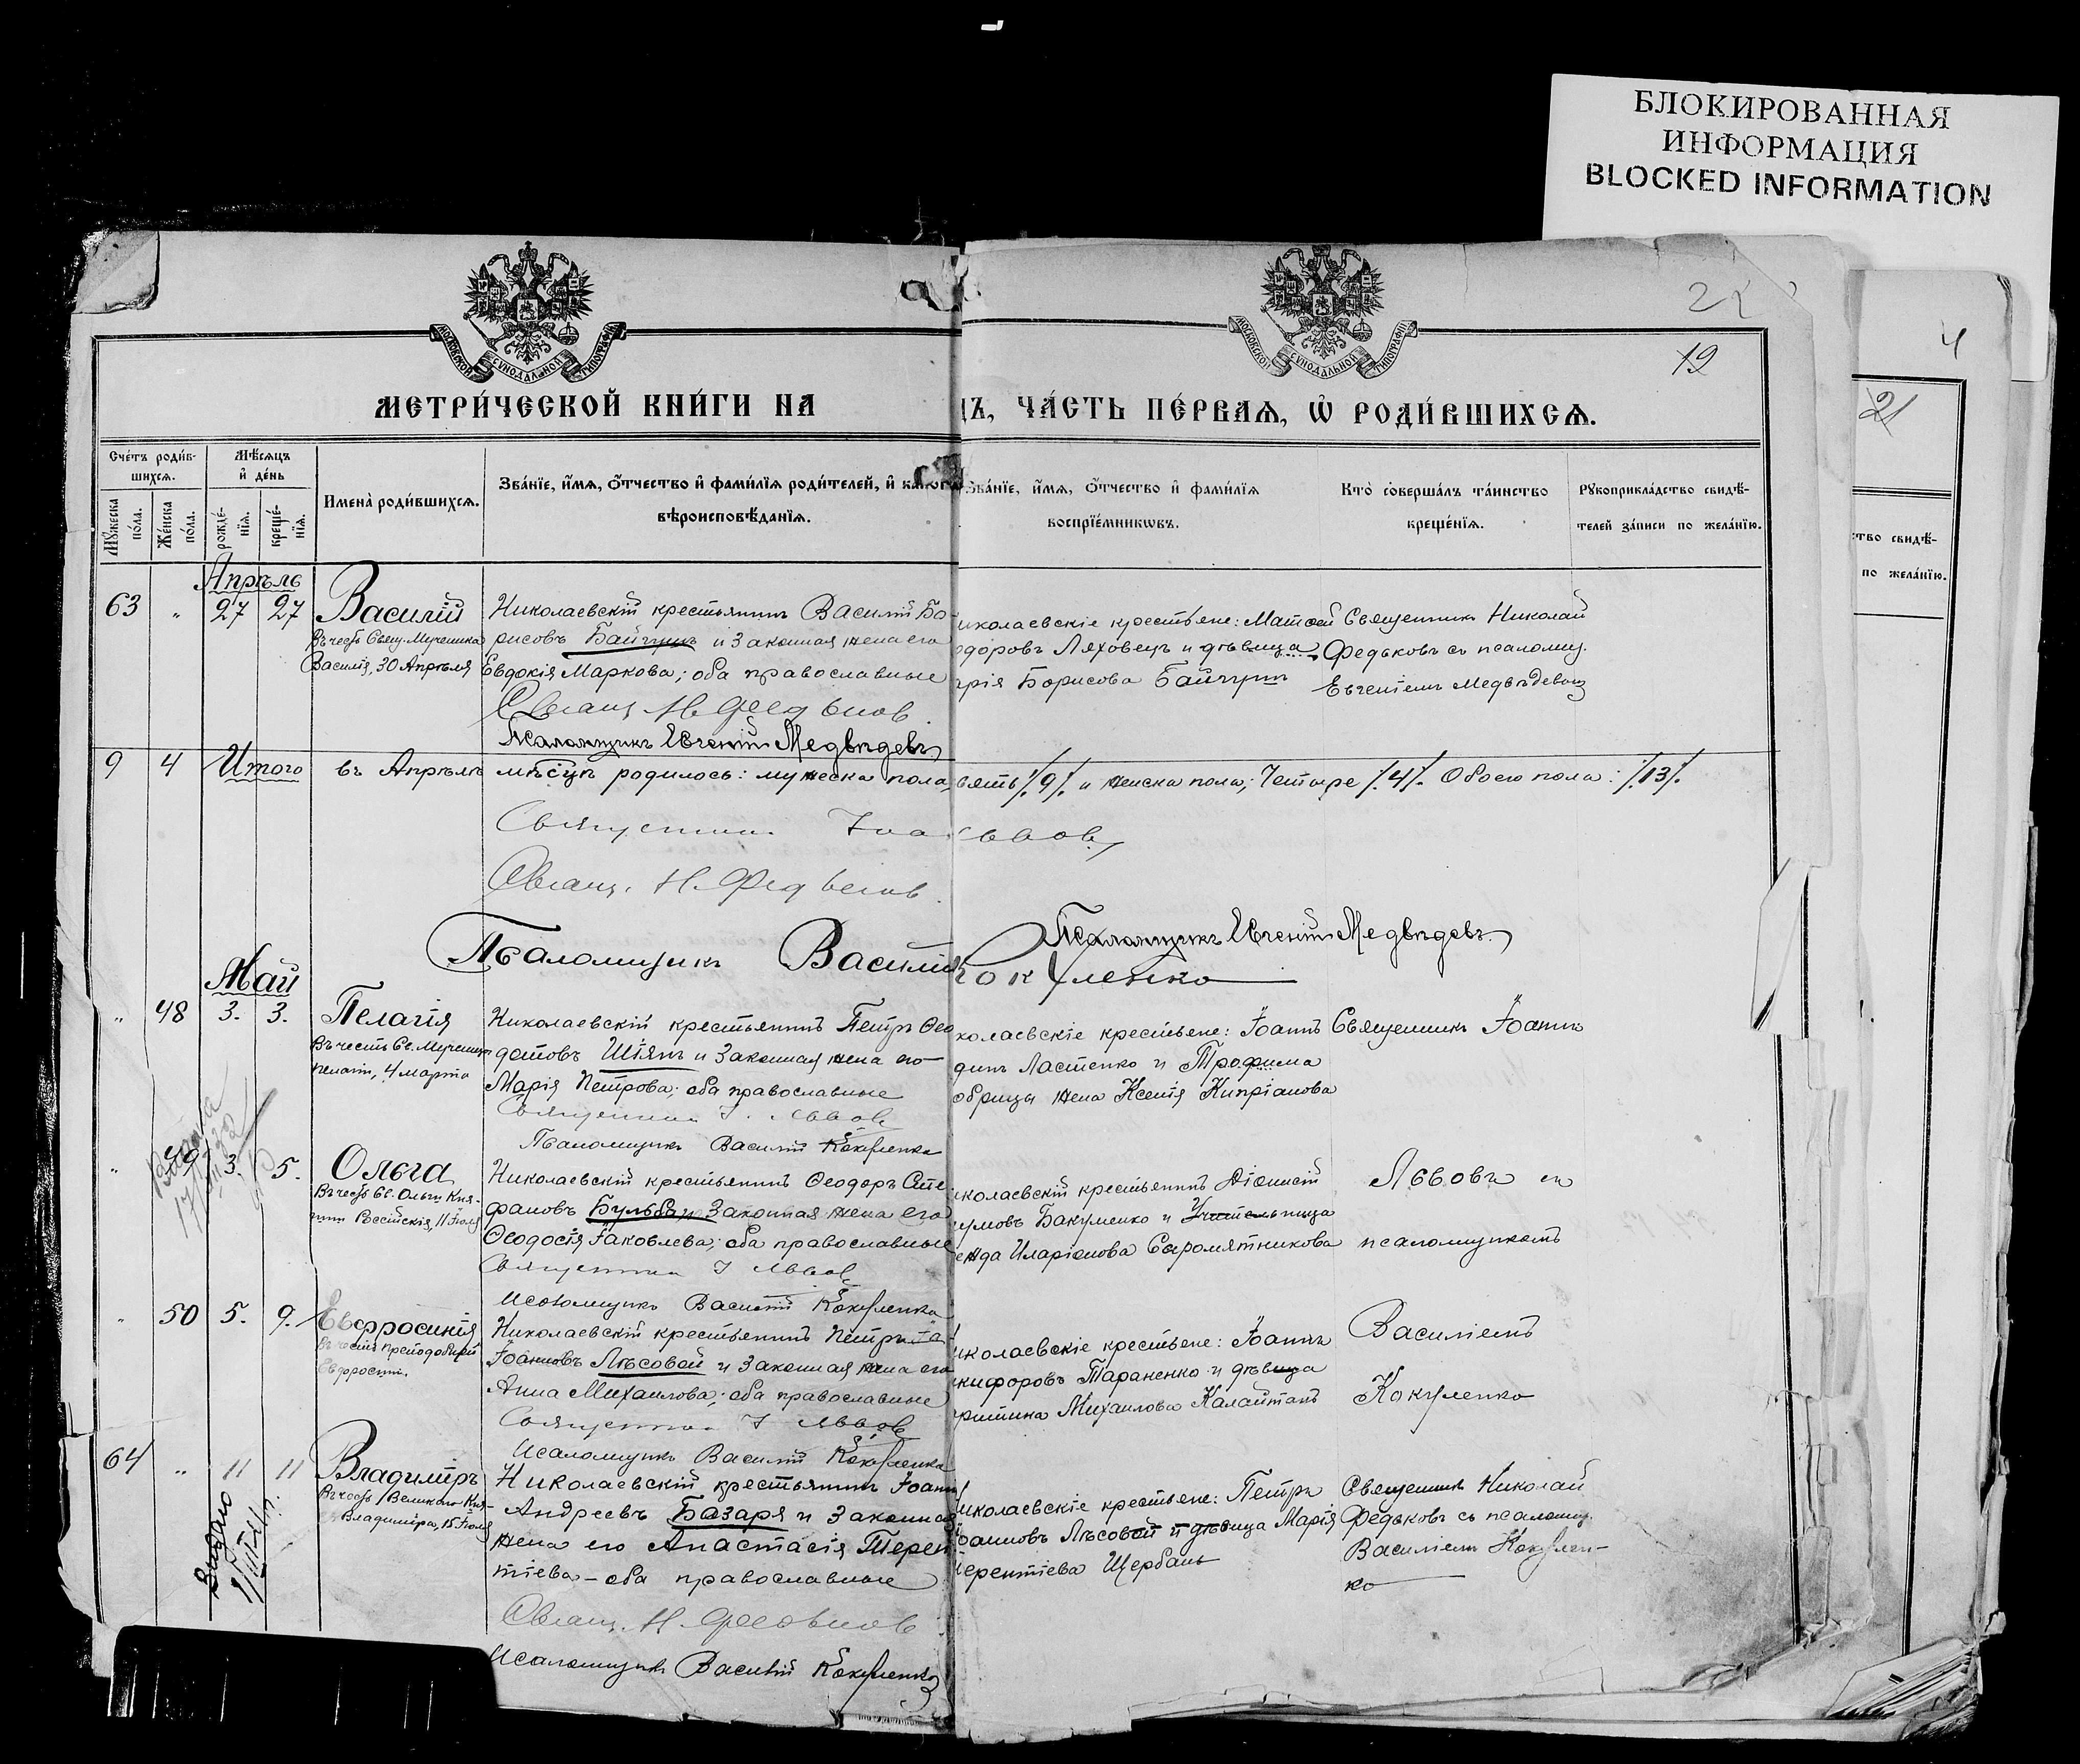 БЛОКИРОВАННАЯ
ИНФОРМАЦИЯ
BLOCKED INFORMATION
МОСКОВСКОЙ СѴНОДАЛЬНОЙ ТИПОГРАФІИ
МОСКОВСКОЙ СѴНОДАЛЬНОЙ ТИПОГРАФІИ
22
19
4
21
МЕТРИ́ЧЕСКОЙ КНИ́ГИ НА
ЦЪ, ЧА́СТЬ ПЕ́РВАѦ, Ѡ РОДИ́ВШИХСѦ.
Сче́тъ роди́в-
шихсѧ.
Мѣ́сѧцъ
и҆ де́нь
Мꙋ́жеска по́ла.
Же́нска по́ла.
рожде́-нїѧ.
креще́-нїѧ.
И҆мена̀ роди́вшихсѧ.
Зва́нїе, и҆́мѧ, ѻ҆́тчество и҆ фами́лїѧ роди́телей, и҆
вѣроисповѣ́данїѧ.
Зва́нїе, и҆́мѧ, ѻ҆́тчество и҆ фами́лїѧ
воспрїе́мникѡвъ.
Кто̀ соверша́лъ та́инство
креще́нїѧ.
Рꙋкоприкла́дство свидѣ́-
телей за́писи по жела́нїю.
ство свидѣ́-
по жела́нїю.
Апрѣль
63 " 27 27 Василій
Въ честь Свящ. Мученика
Василія, 30 Апрѣля
Николаевскій крестьянинъ Василій Бо-
рисовъ Байчукъ и законная жена его
Евдокія Маркова; оба православные
Свящ. Н. Федьков.
Псаломщикъ Евгеній Медвѣдевъ
иколаевскіе крестьяне: Матѳей
одоровъ Ляховецъ и дѣвица
рія Борисова Байчукъ
Священникъ Николай
Федьковъ съ псаломщ.
Евгеніемъ Медвѣдевымъ
9 4 Итого въ Апрѣлѣ мѣсяцѣ родилось: мужеска пола,
вять /.9/. и женска пола; Четыре /.4/. Обоего пола: /.13/.
Священник Іоа Львов
Свящ. Н. Федьков.
Псаломщикъ Евгеній Медвѣдевъ.
Псаломщикъ Василій Кокуленко
Май
" 48 3. 3. Пелагія
Въ честь Св. Мученицы
Пелагіи, 4 марта
Николаевскій крестьянинъ Петръ Ѳео
дотовъ Шіянъ и законная жена его
Марія Петрова; оба православные
Священник І. Львов
Псаломщикъ Василій Кокуленко
колаевскіе крестьяне: Іоаннъ
динъ Ластенко и Трофима
обрицы жена Ксенія Кипріанова
Священникъ Іоаннъ
" 49 3. 5. Ольга
Въ честь Св. Ольги Кня-
гини Россійскія, 11 Іюля
Николаевскій крестьянинъ Ѳеодоръ Сте-
фановъ Бульба и законная жена его
Ѳеодосія Іаковлева; оба православные
Священник І Львов
Псаломщикъ Василій Кокуленко
иколаевскій крестьянинъ Діонисій
умовъ Бакуменко и Учительница
ежда Иларіонова Сыромятникова
Львовъ съ
псаломщикомъ
" 50 5. 9. Евфросинія
Въ честь преподобной
Евфросиніи.
Николаевскій крестьянинъ Петръ
Іоанновъ Лѣсовой и законная жена его
Анна Михаилова; оба православные
Священник І Львов
Псаломщикъ Василій Кокуленко
иколаевскіе крестьяне: Іоаннъ
кифоровъ Тараненко и дѣвица
ристина Михаилова Калайтанъ
Василіемъ
Кокуленко
64 " 11 11 Владиміръ
Въ честь Великаго Кня-
Владиміра, 15 Іюля
Выдано
Николаевскій крестьянинъ Іоаннъ
Андреевъ Базаря и законная
жена его Анастасія Терен
тіева - оба православные
Свящ. Н. Федьков
Псаломщикъ Василій Кокуленко
иколаевскіе крестьяне: Петръ
оанновъ Лѣсовой и дѣвица Марія
ерентіева Щербань
Священникъ Николай
Федьковъ съ псаломщ.
Василіемъ Кокулен-
ко